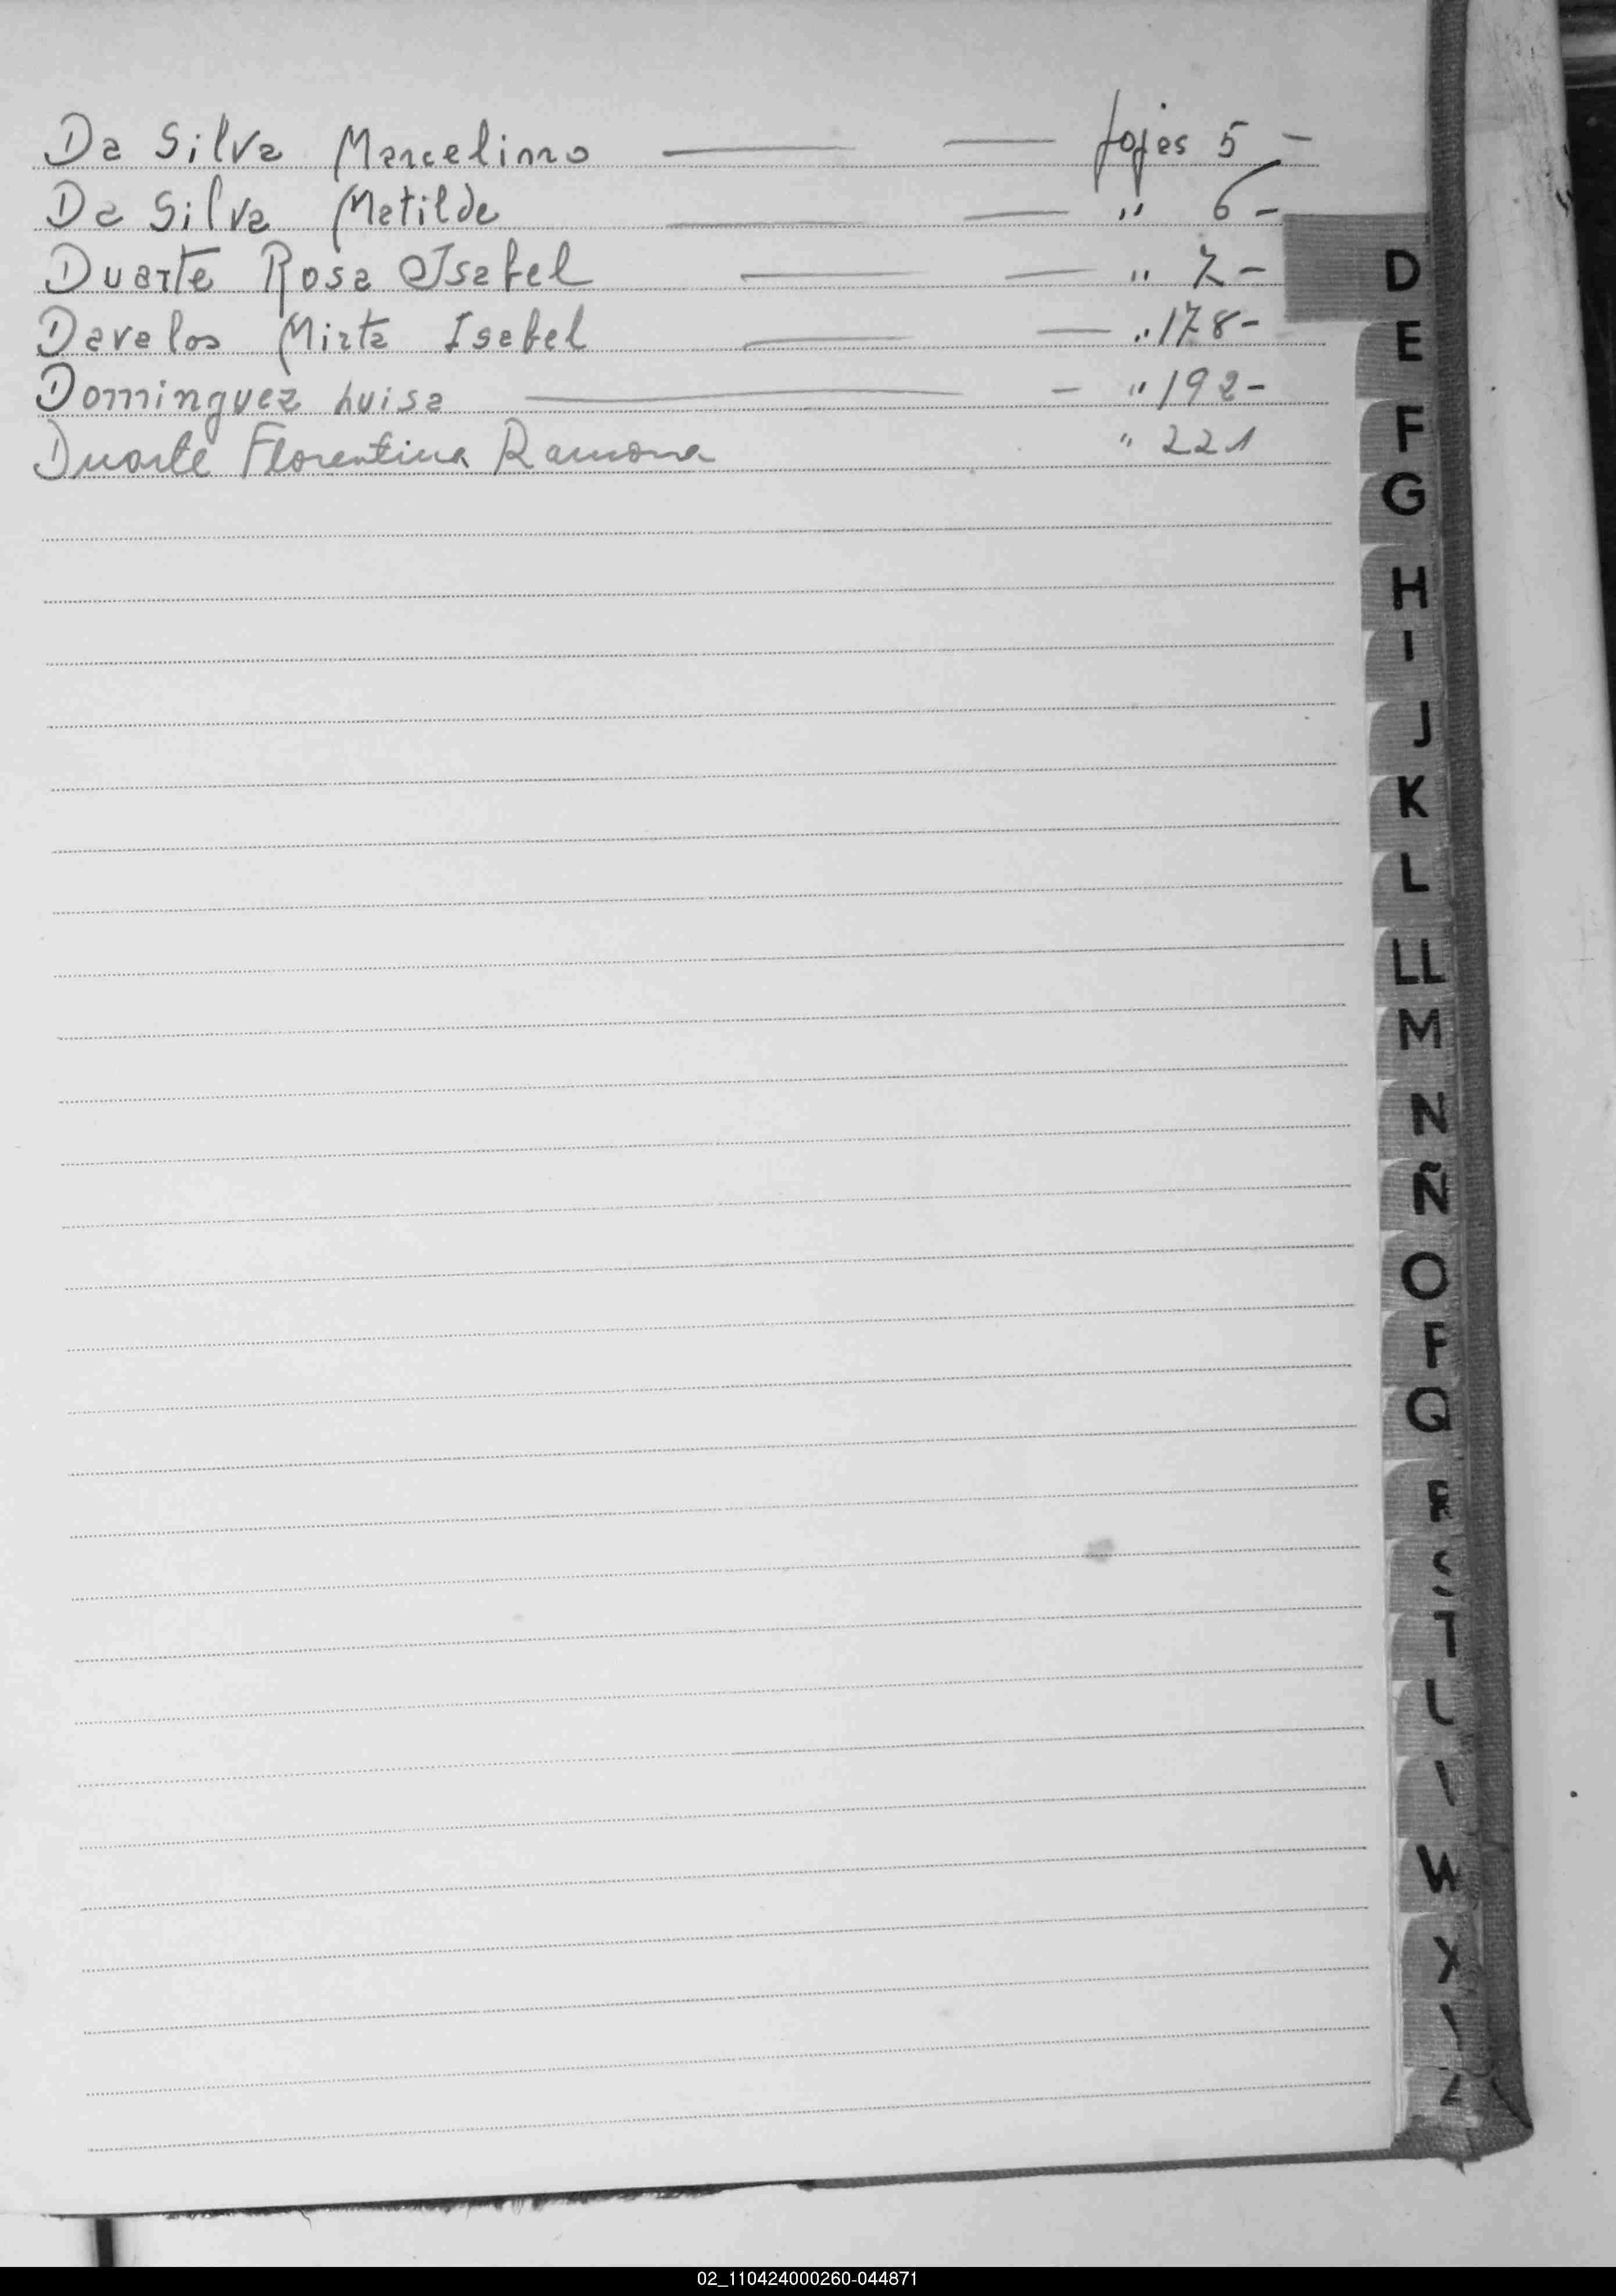 Da Silva Marcelinno — — fojas 5 -
Da Silva Matilde — — " 6 -
Duarte Rosa Isabel — — " 7 -
Davalos Mirta Isabel — — " 178 -
Dominguez Luisa — - " 192 -
Duarte Florentina Ramona " 221
D
E
F
G
H
I
J
K
L
LL
M
N
Ñ
O
Q
W
X
Z
02_110424000260-044871